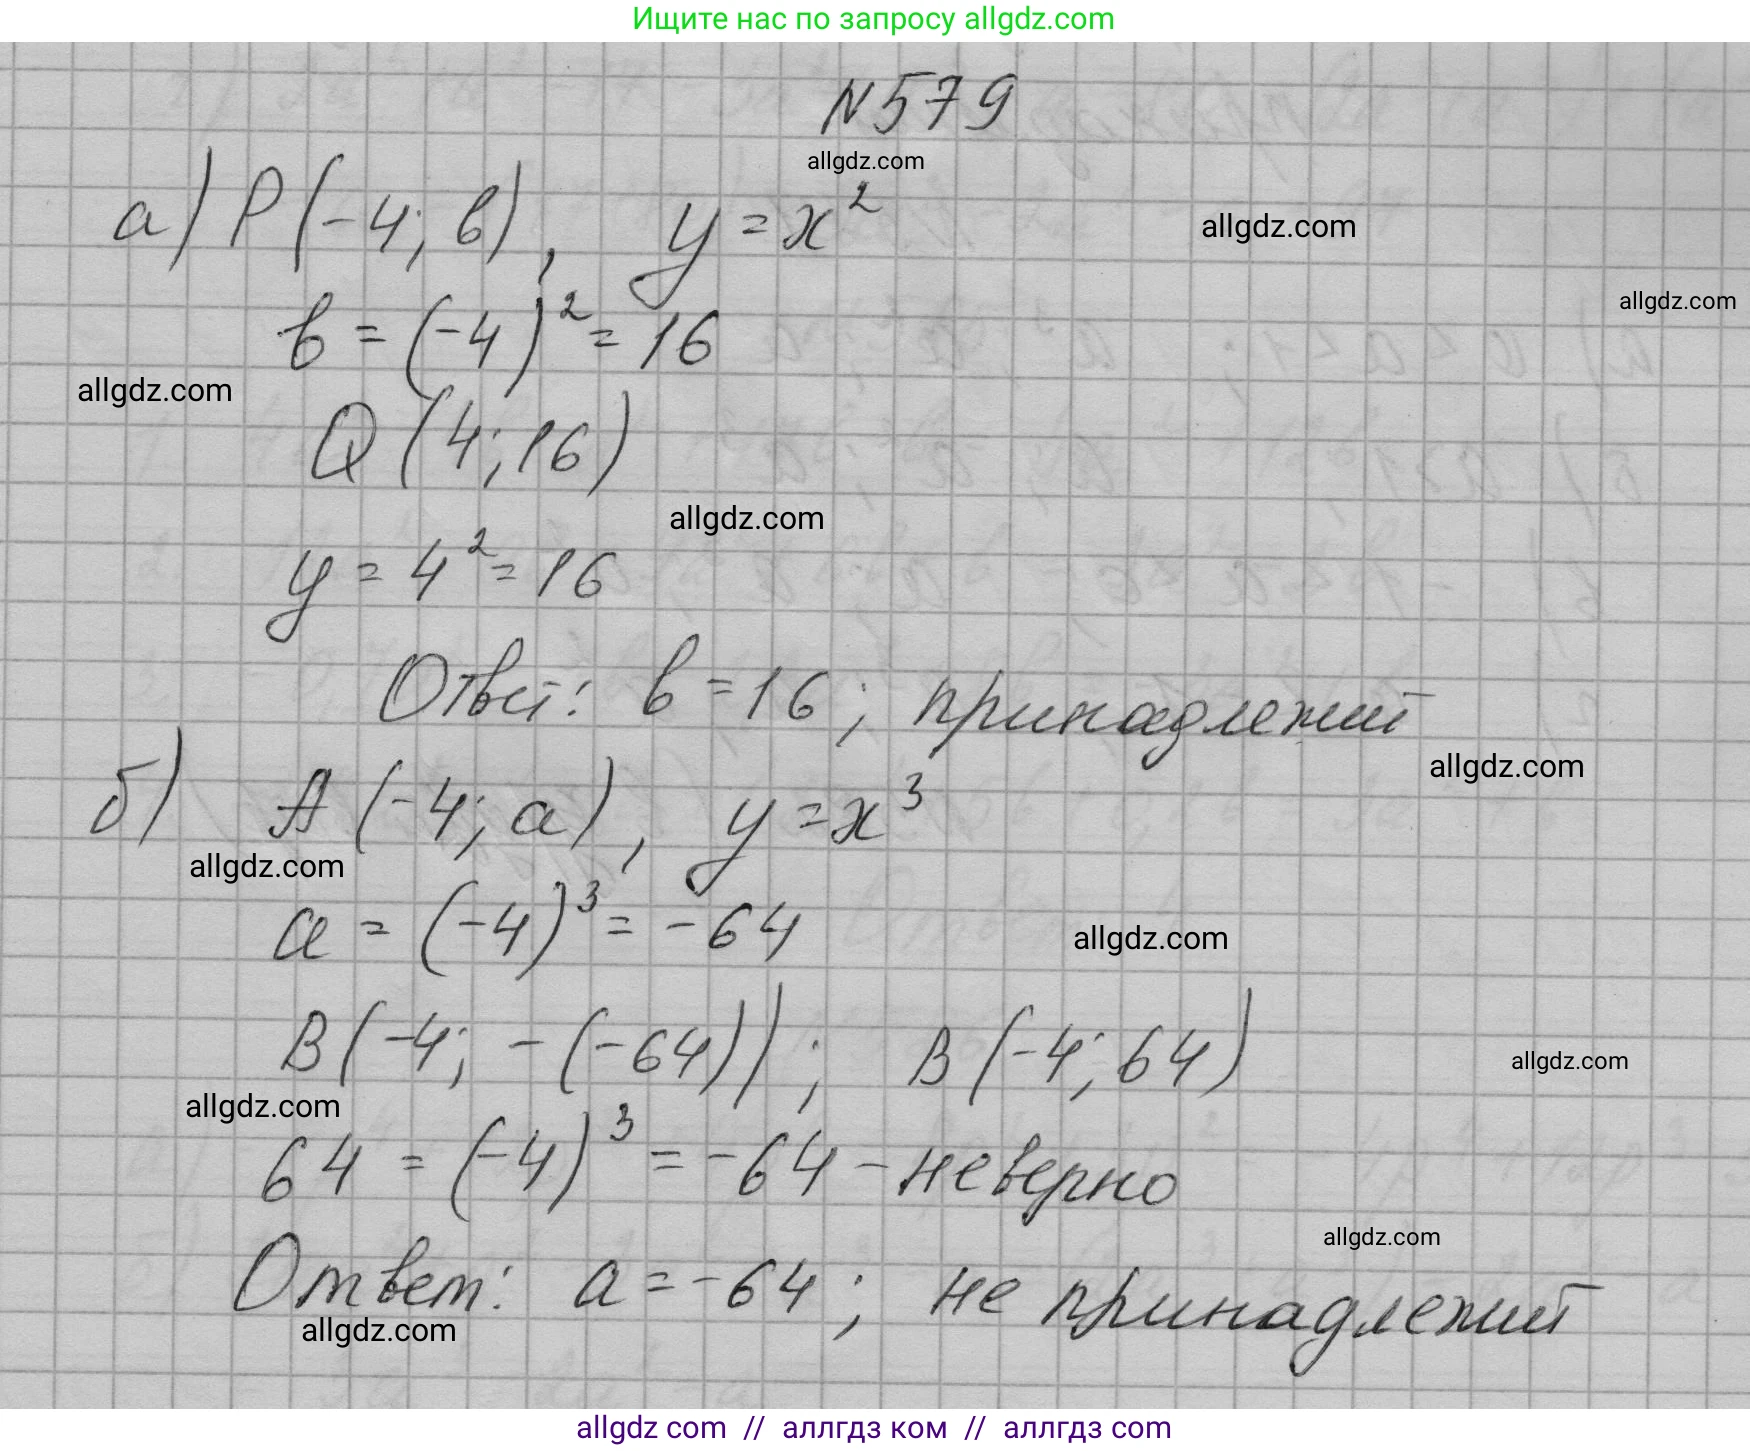 Ищите нас по запросу allgdz.com
N579
allgdz.com
а) P(-4; в), y = x²
allgdz.com
allgdz.com
в = (-4)² = 16
allgdz.com
Q (4; 16)
allgdz.com
y = 4² = 16
Ответ: в = 16; принадлежит
allgdz.com
б) A (-4; a), y = x³
allgdz.com
a = (-4)³ = -64
allgdz.com
B(-4; -(-64)); B(-4; 64)
allgdz.com
allgdz.com
64 = (-4)³ = -64 - неверно
allgdz.com
Ответ: a = -64; не принадлежит
allgdz.com
allgdz com // аллгдз ком // аллгдз com